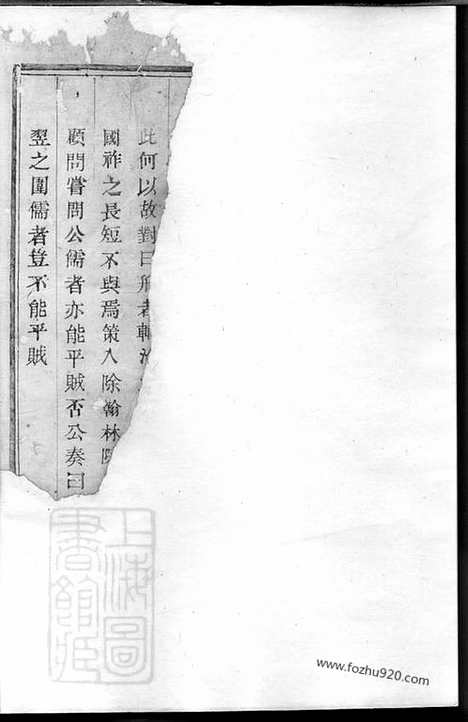 此何以故對曰刑者輔治
國祚之長短不與焉策入除翰林院
顧問嘗問公儒者亦能平賊否公奏曰
翌之圍儒者豈不能平賊
上海圖
書館藏
www.fozhu920.com